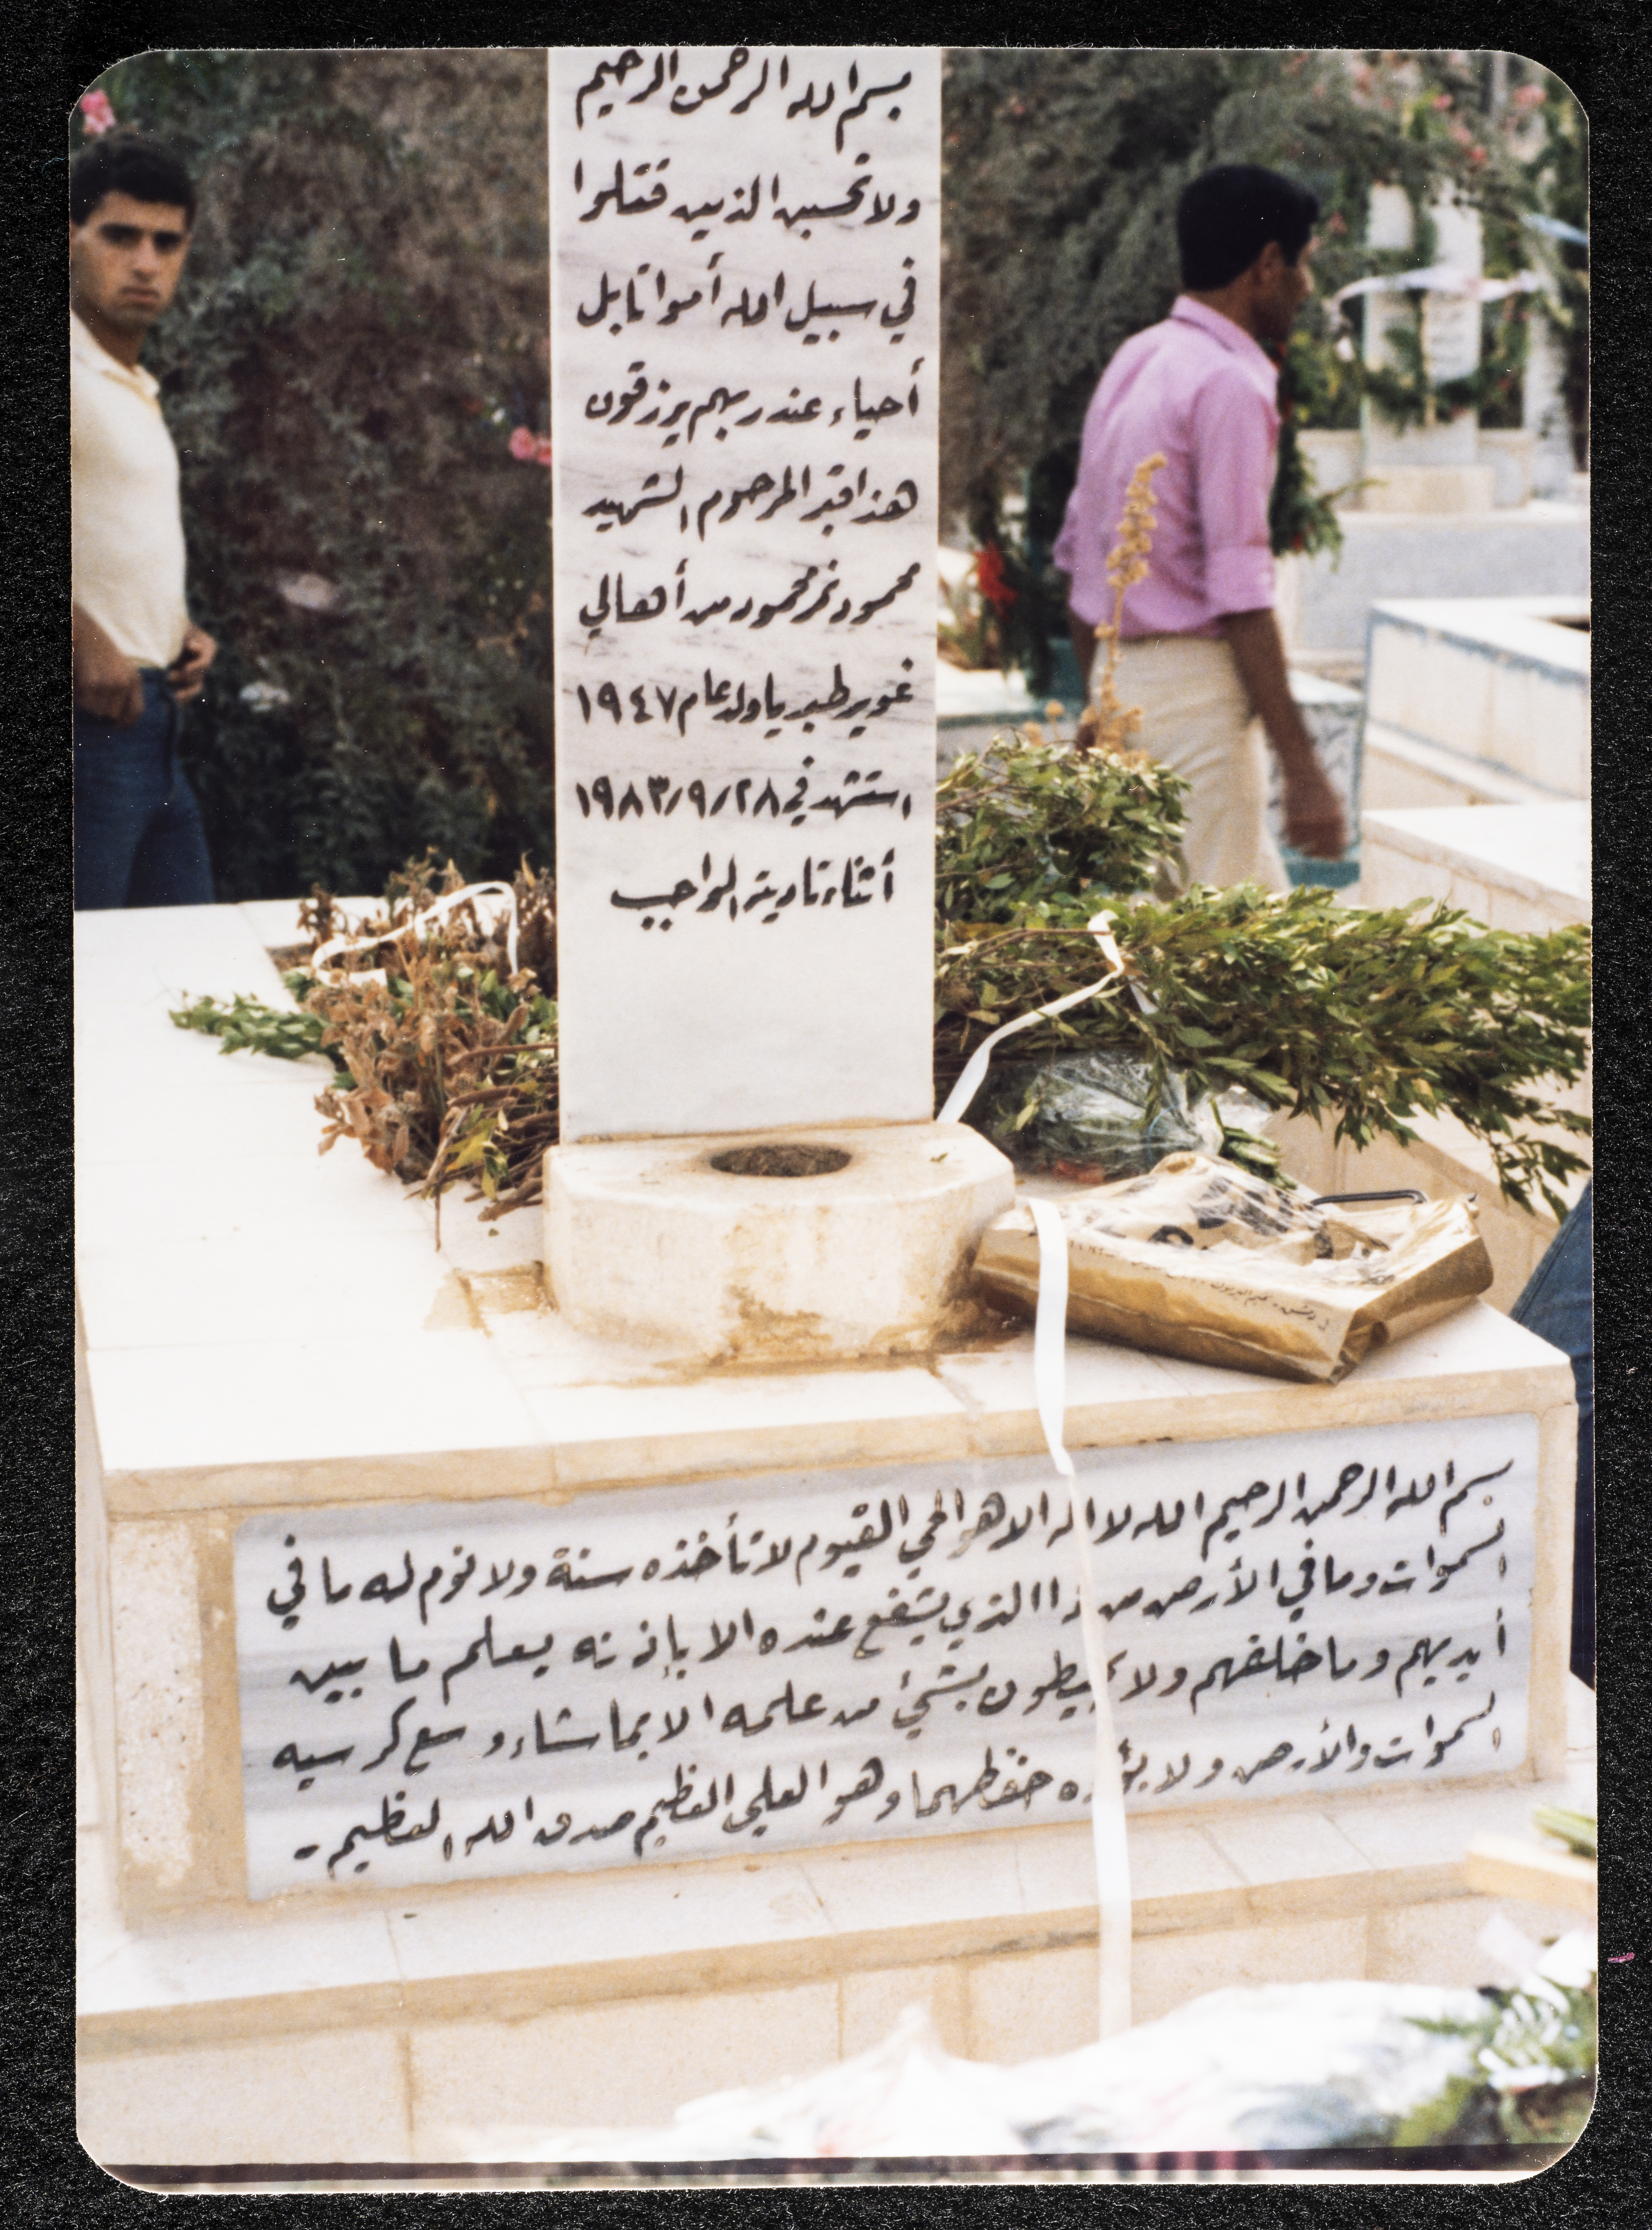 بسم الله الرحمن الرحيم
ولا تحسبن الذين قتلوا
في سبيل الله أمواتا بل
أحياء عند ربهم يرزقون
هذا قبر المرحوم الشهيد
محمود نمر محمود من أهالي
غوير طبريا ولد عام ١٩٤٧
استشهد في ٢٨/٩/١٩٨٣
أثناء تادية الواجب
بسم الله الرحمن الرحيم الله لا اله الا هو الحي القيوم لا تأخذه سنة ولا نوم له ما في
السموات وما في الأرض من ذا الذي يشفع عنده الا بإذنه يعلم ما بين
أيديهم وما خلفهم ولا يحيطون بشئ من علمه الا بما شاء وسع كرسيه
السموات والأرض ولا يؤده حفظهما وهو العلي العظيم صدق الله العظيم -